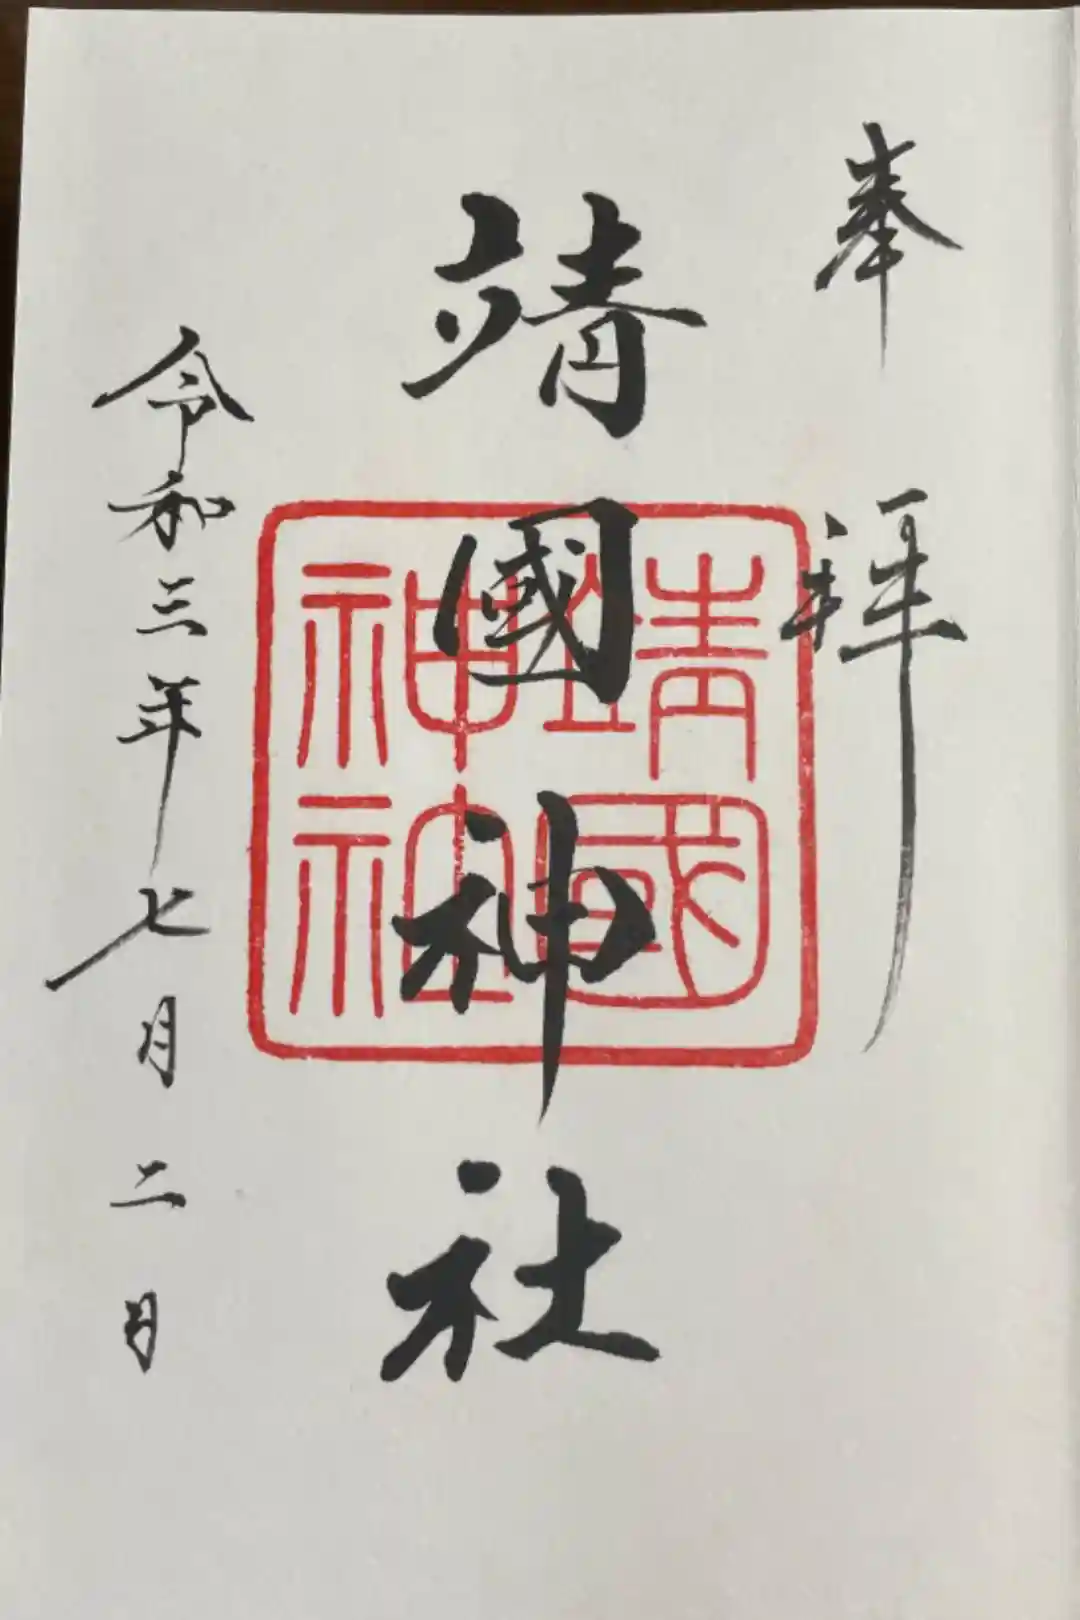 奉拝
靖國神社
靖國
神社
令和三年七月二日